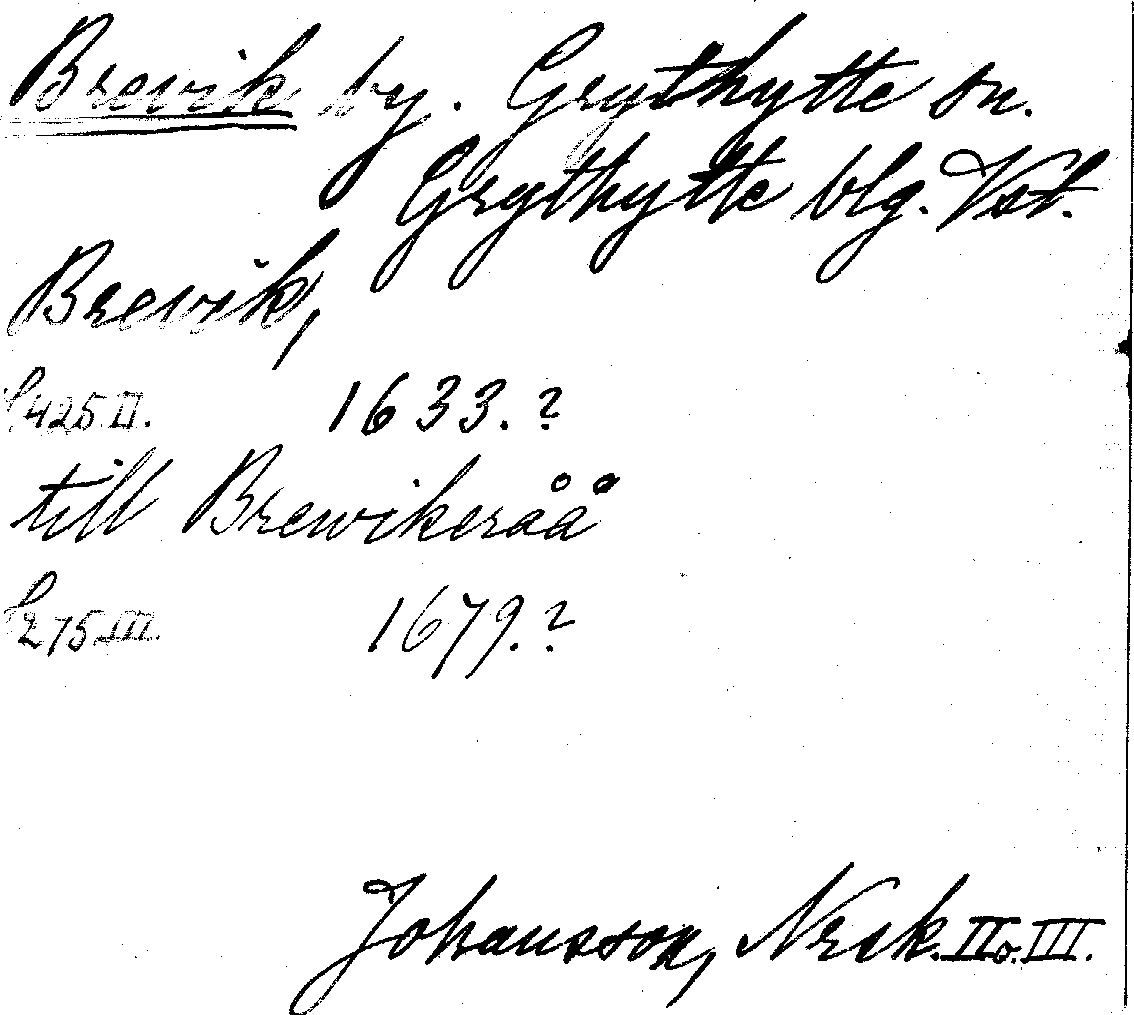 Brewik by. Grythytte sn.
Grythytte blg. Vstl.
Brewik,
S. 425 II. 1633.?
till Brewikeråå
S. 275 III. 1679.?
Johansson, Nrik. II o. III.